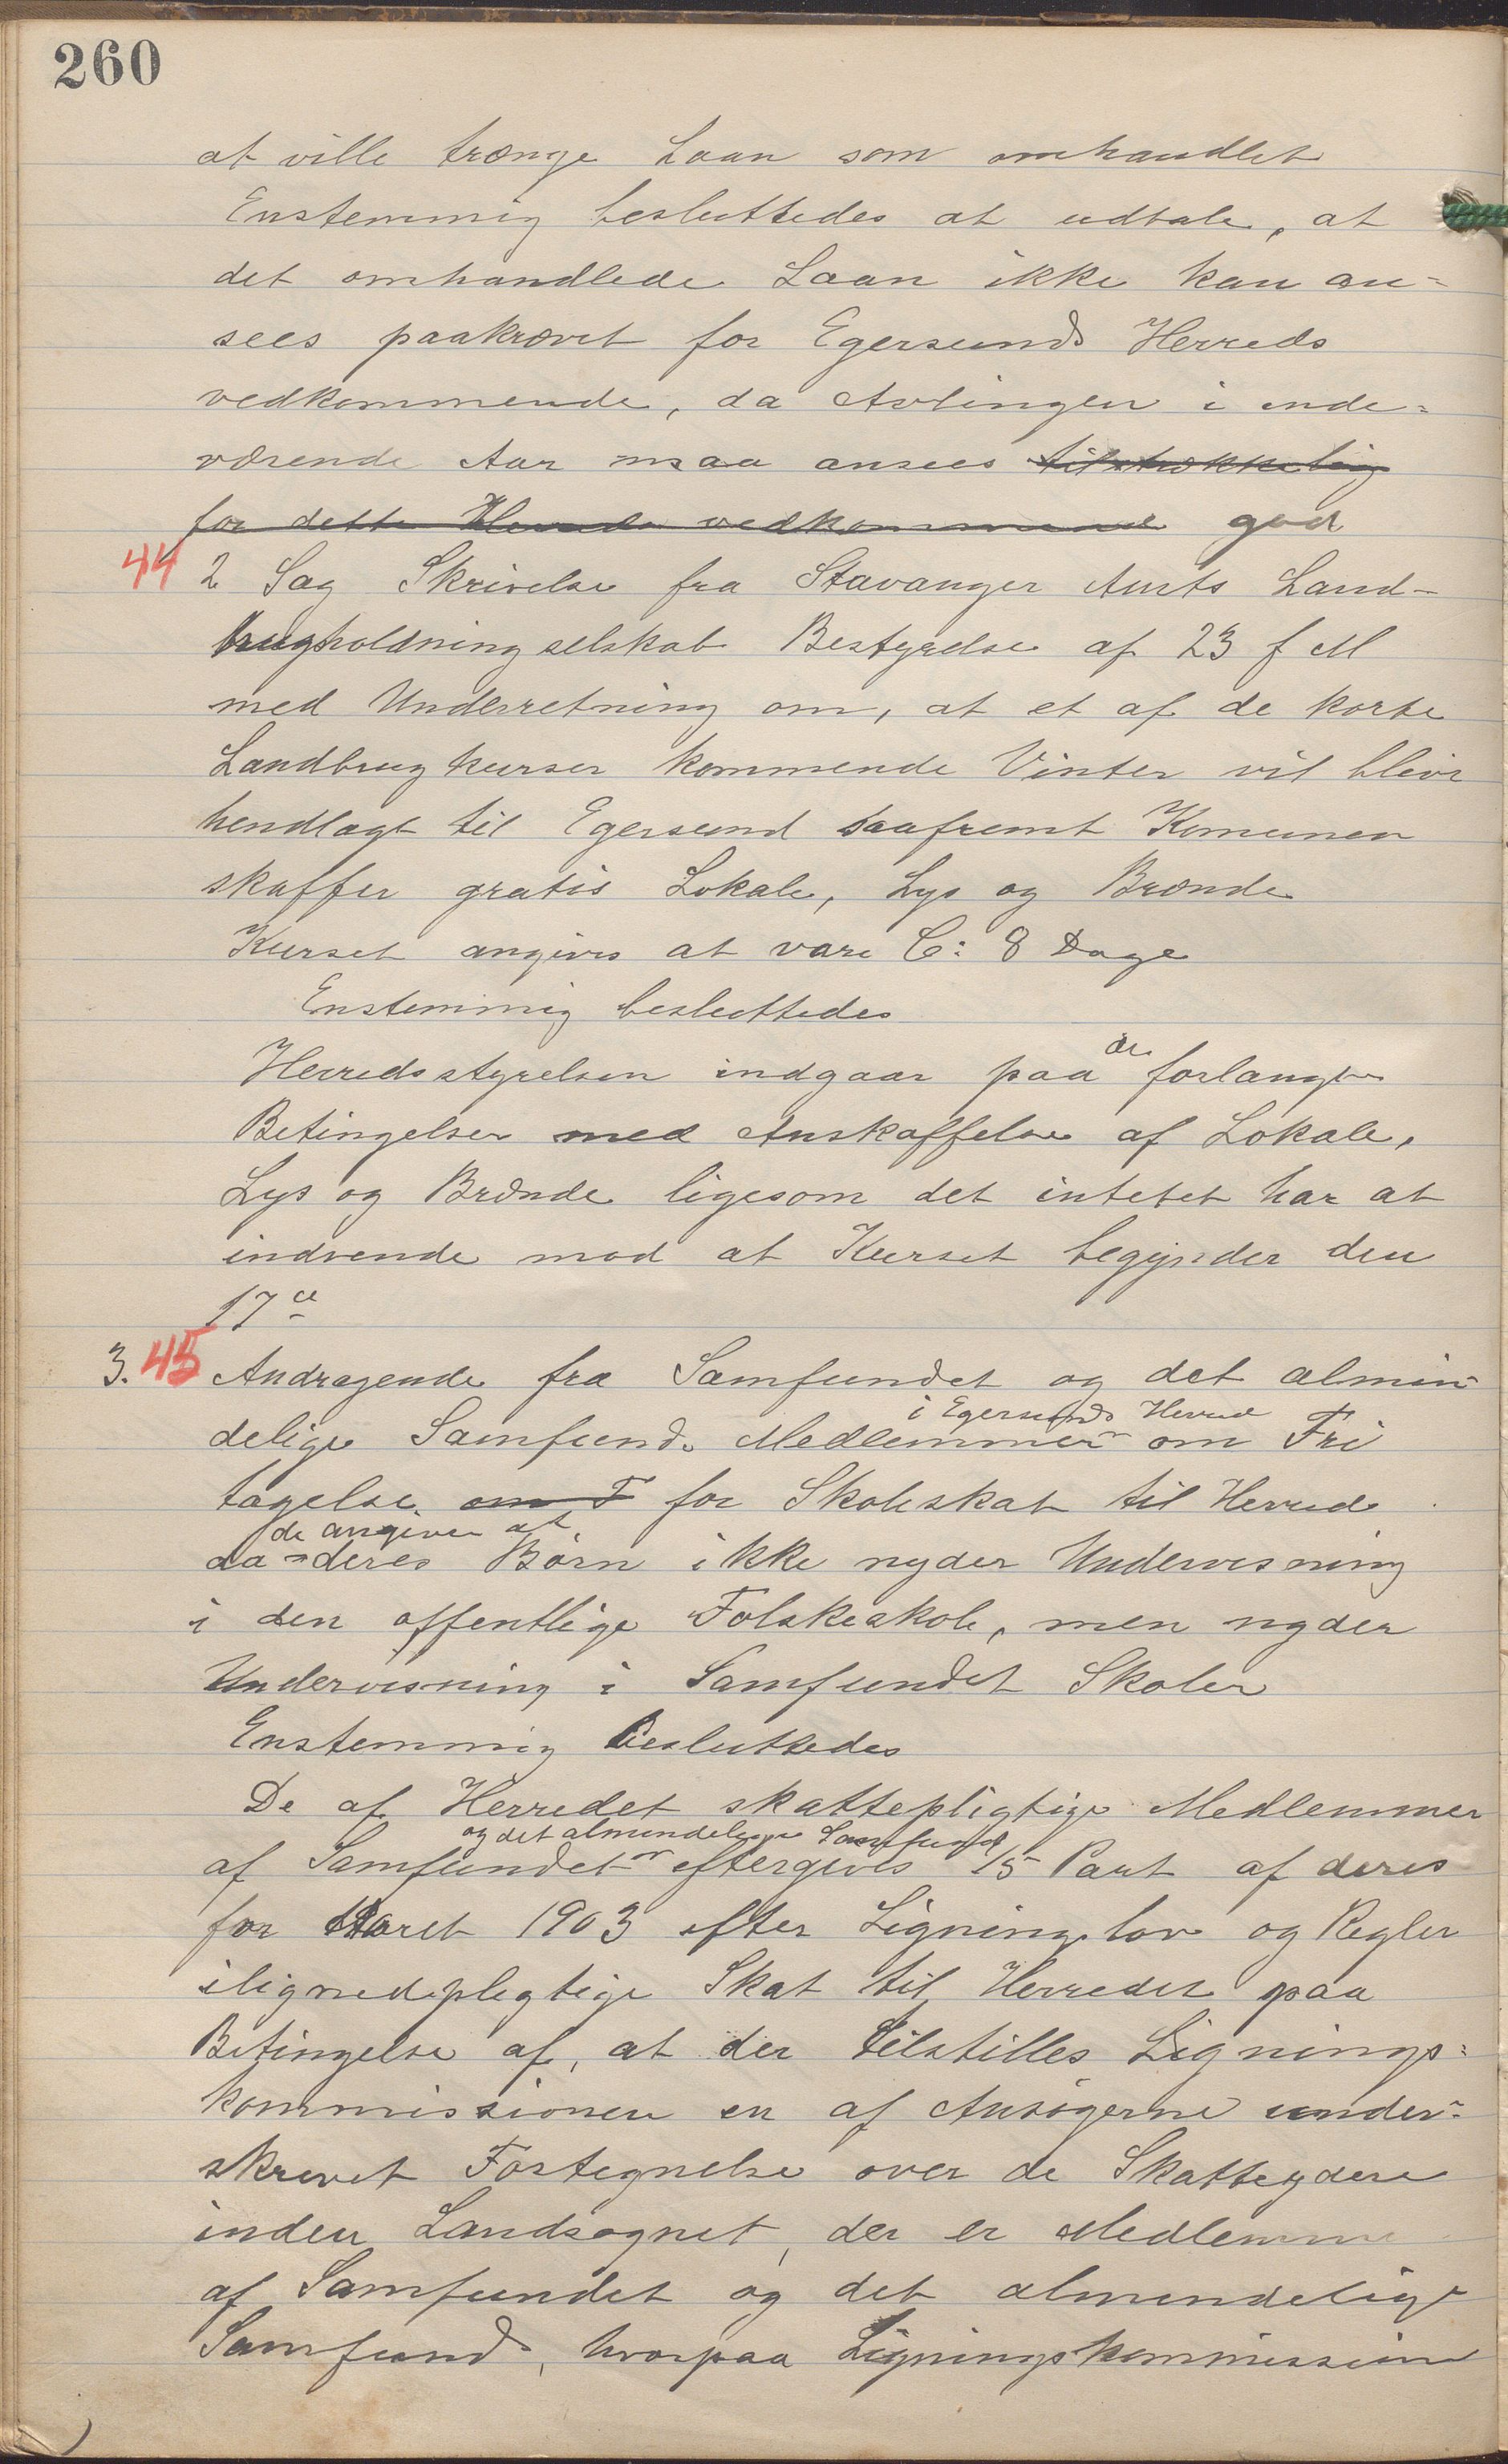 260
at ville trænge Laan som omhandlet
Enstemmig besluttedes at udtale, at
det omhandlede Laan ikke kan an=
sees paakrævet for Egersunds Herreds
vedkommende, da Avlingen i inde=
værende Aar maa ansees tilstrækkelig
for dette Herreds vedkommend god
44 2 Sag Skrivelse fra Stavanger Amts Land-
brugsholdningselskab Bestyrelse af 23 f M
med Underretning om, at et af de korte
Landbrugkurser kommende Vinter vil blive
henlagt til Egersund saafremt Komunen
skaffer gratis Lokale, Lys og Brænde
Kurset angives at vare C: 8 Dage
Enstemmig besluttedes
Herredsstyrelsen indgaar paa de forlangte
Betingelser med Anskaffelse af Lokale,
Lys og Brænde ligesom det intetet har at
indvende mod at Kurset begynder den
17de
3. 45 Andragende fra Samfundet og det almin-
delige Samfunds Medlemmer i Egersunds Herred om Fri
tagelse om F for Skoleskat til Herred
da de angiver at deres Børn ikke nyder Undervisning
i den offentlige Folskeskole, men nyder
Undervisning i Samfundet Skoler
Enstemmig Besluttedes
De af Herredet skattepligtige Medlemmer
af Samfundet og det almindelige Samfund eftergives 15 Part af deres
for Aaret 1903 efter Ligningslov og Regler
ilignedeplegtige Skat til Herredet paa
Betingelse af, at der tilstilles Lignings=
kommissionen en af Ansøgerne under-
skrevet Fortegnelse over de Skatteydere
inden Landsognet, der er Medlemme
af Samfundet og det almendelige
Samfund, hvorpaa Ligningskommission